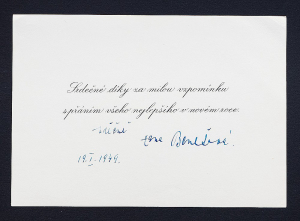 Srdečné díky za milou vzpomínku
s přáním všeho nejlepšího v novém roce.
Benešová.
19.I.1949.